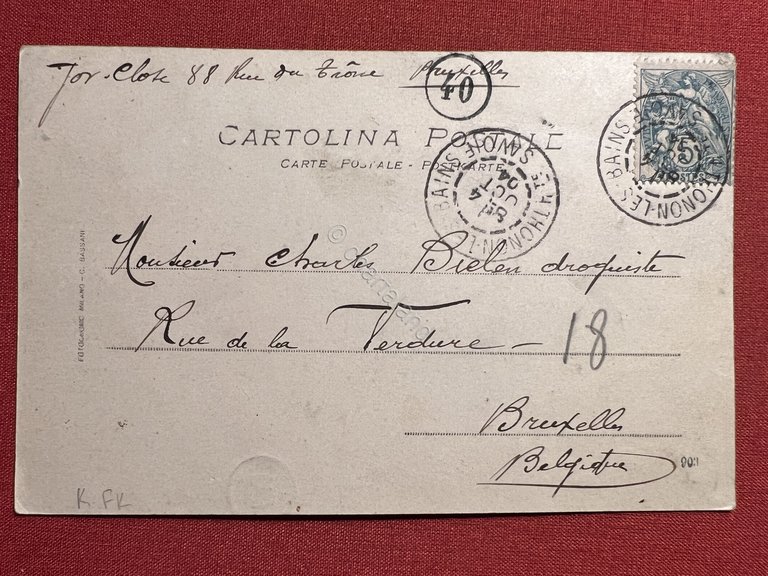 Jos. Close 88 Rue du Trône Bruxelles
40
CARTOLINA POSTALE
CARTE POSTALE - POSTKARTE
THONON-LES-BAINS
5
POSTES
THONON-LES-BAINS
HTE SAVOIE
4
OCT
04
FOTOCROMIE MILANO - C. BASSANI
Monsieur Charles Bielen droguiste
Rue de la Verdure -
18
Bruxelles
Belgique
K FK